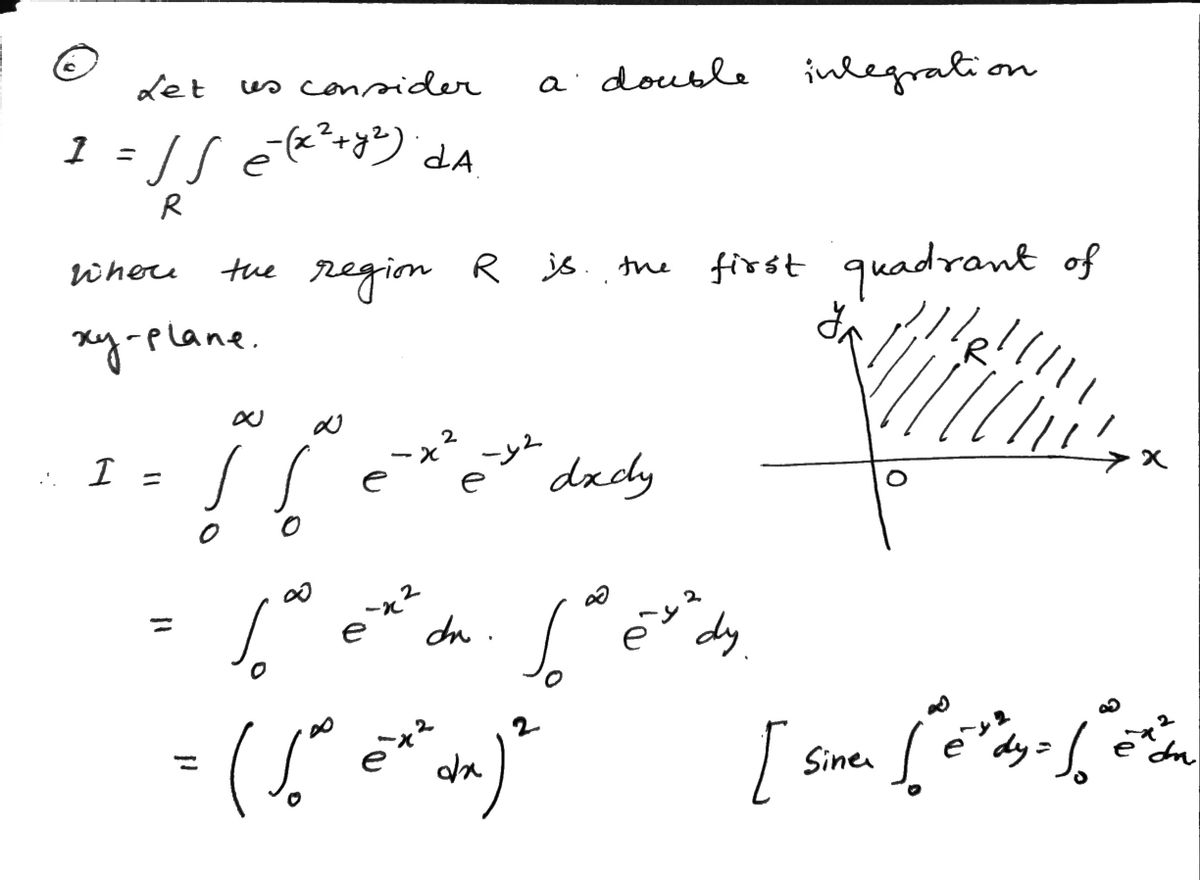 (c)
Let us consider a double integration
I = ∫∫ e^{-(x²+y²)} dA
R
where the region R is the first quadrant of
xy-plane.
y
R
x
O
∴ I = ∫₀^∞ ∫₀^∞ e^{-x²} e^{-y²} dxdy
= ∫₀^∞ e^{-x²} dx . ∫₀^∞ e^{-y²} dy.
= (∫₀^∞ e^{-x²} dx)² [ Since ∫₀^∞ e^{-y²} dy = ∫₀^∞ e^{-x²} dx